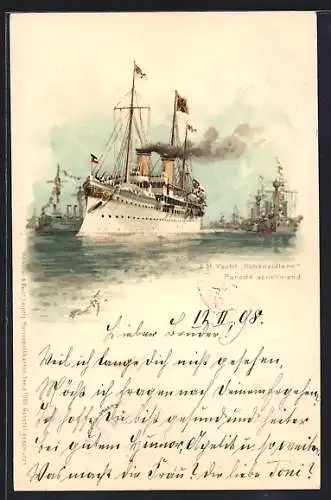 S.M. Yacht „Hohenzollern“
Parade abnehmend.
12 II. 98.
Lieber Bruder!
Weil ich lange dich nicht gesehen
Möcht ich fragen nach Deinem ergehen
Ich hoffe Du bist gesund und heiter
bei gutem Humor, und so weiter.
Was macht die Frau? die liebe Toni?